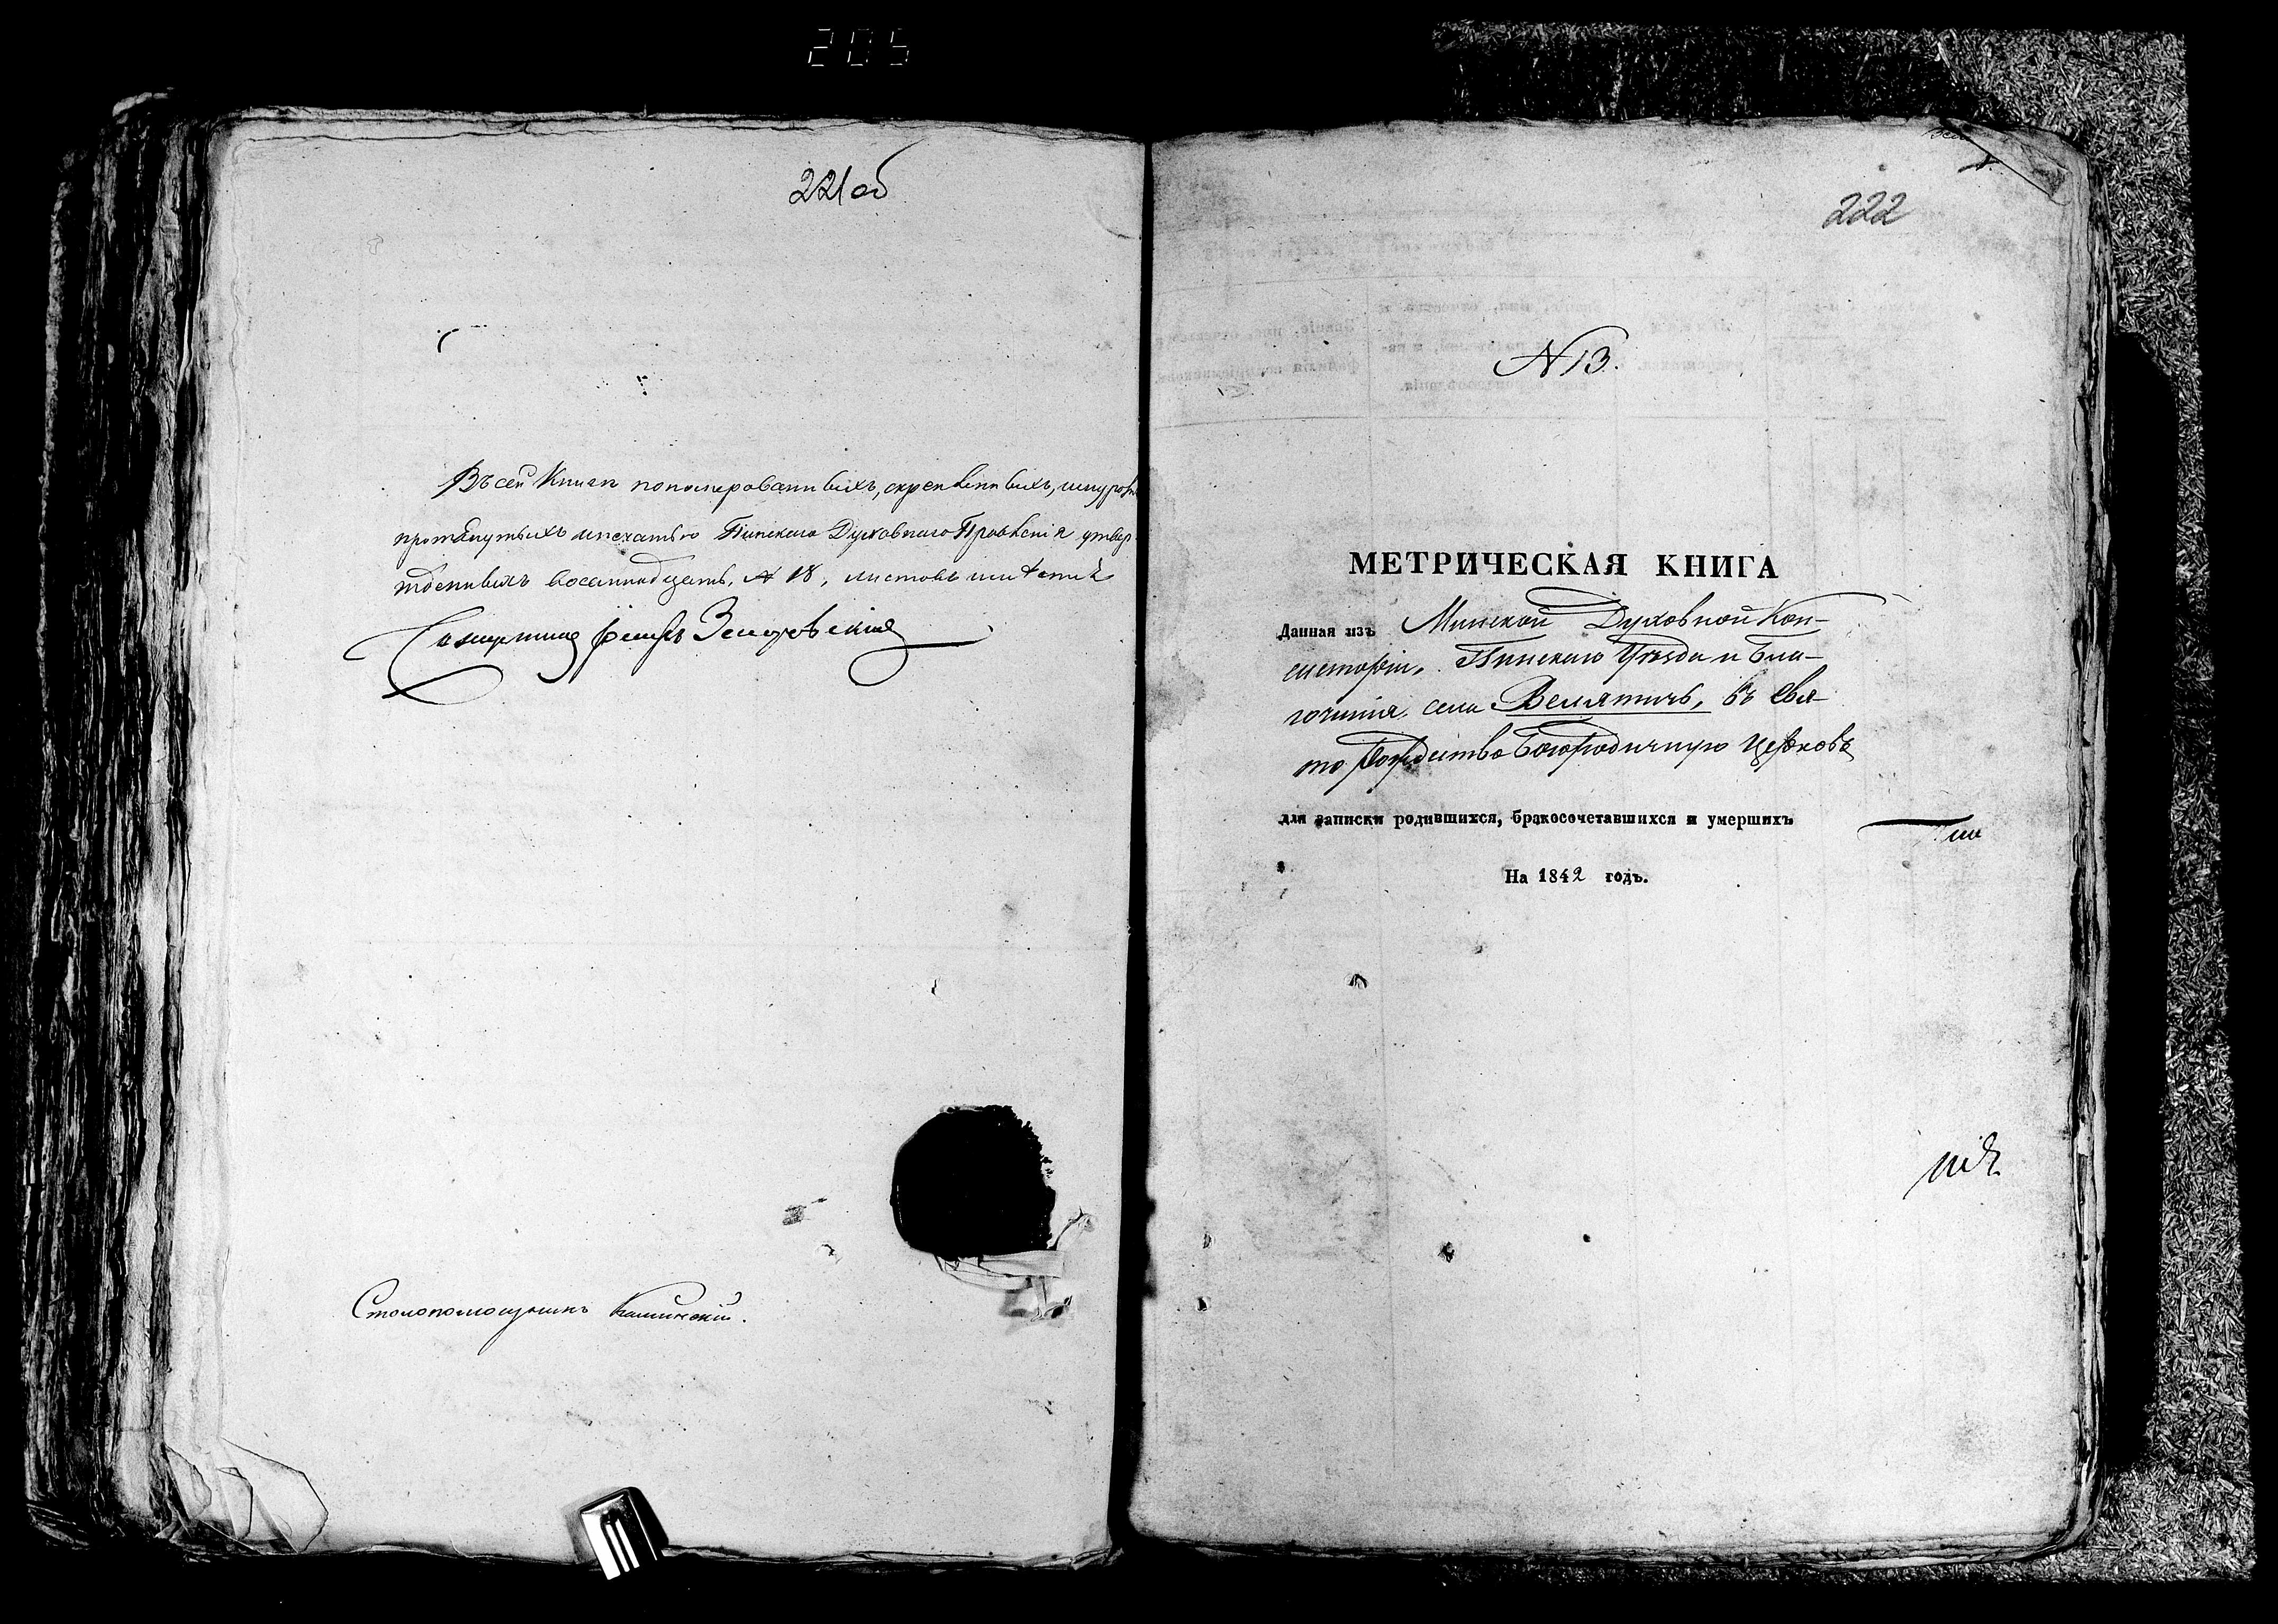 205
221об
Въ сей Книге пономерованныхъ, скрепленныхъ, шнуромъ
протянутыхъ и печатью Пинскаго Духовнаго Правленія утвер
жденныхъ восемнадцать, № 18, листовъ
Столопомощникъ Каминскій.
222
N 13.
МЕТРИЧЕСКАЯ КНИГА
Данная изъ Минской Духовной Кон-
систоріи, Пинскаго Уѣзда и Бла-
гочинія села Велятичъ, въ Свя-
то Рождество Богородичную Церковь
для записки родившихся, бракосочетавшихся и умершихъ
На 1842 годъ.